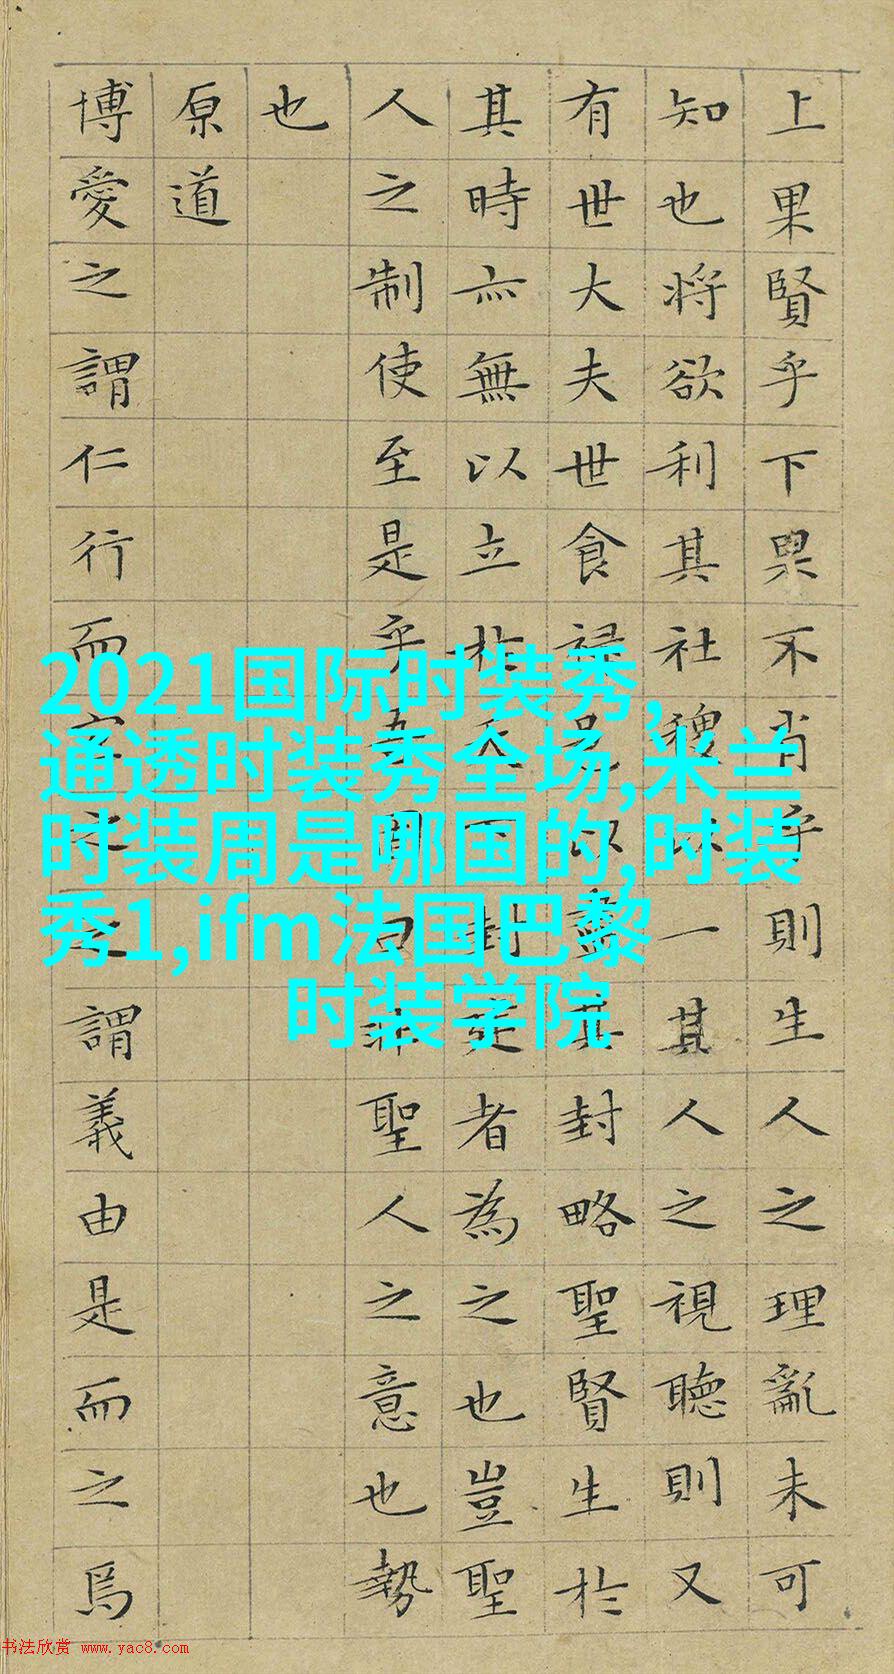 上果賢乎下果不肖乎則生人之理亂未可
知也將欲利其社稷以一其人之視聽則又
有世大夫世食祿邑以盡其封略聖賢生於
其時亦無以立於天下封建者為之也豈聖
人之制使至是乎吾固曰非聖人之意也勢
也
原道
博愛之謂仁行而宜之之謂義由是而之焉
2021国际时装秀,
通透时装秀全场,米兰
时装周是哪国的,时装
秀1,ifm法国巴黎
时装学院
书法欣赏 www.yac8.com